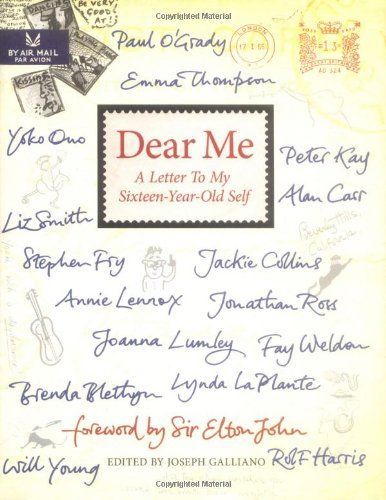 BY AIR MAIL
PAR AVION
BE VERY GOOD AT!
Paul O'Grady
LONDON
Emma Thompson
Yoko Ono
Dear Me
A Letter To My
Sixteen-Year-Old Self
Peter Kay
Alan Carr
Liz Smith
Beverly Hills,
California
Stephen Fry
Jackie Collins
Annie Lennox
Jonathan Ross
Joanna Lumley
Fay Weldon
Brenda Blethyn
Lynda LaPlante
foreword by Sir Elton John
Will Young
EDITED BY JOSEPH GALLIANO
Rolf Harris